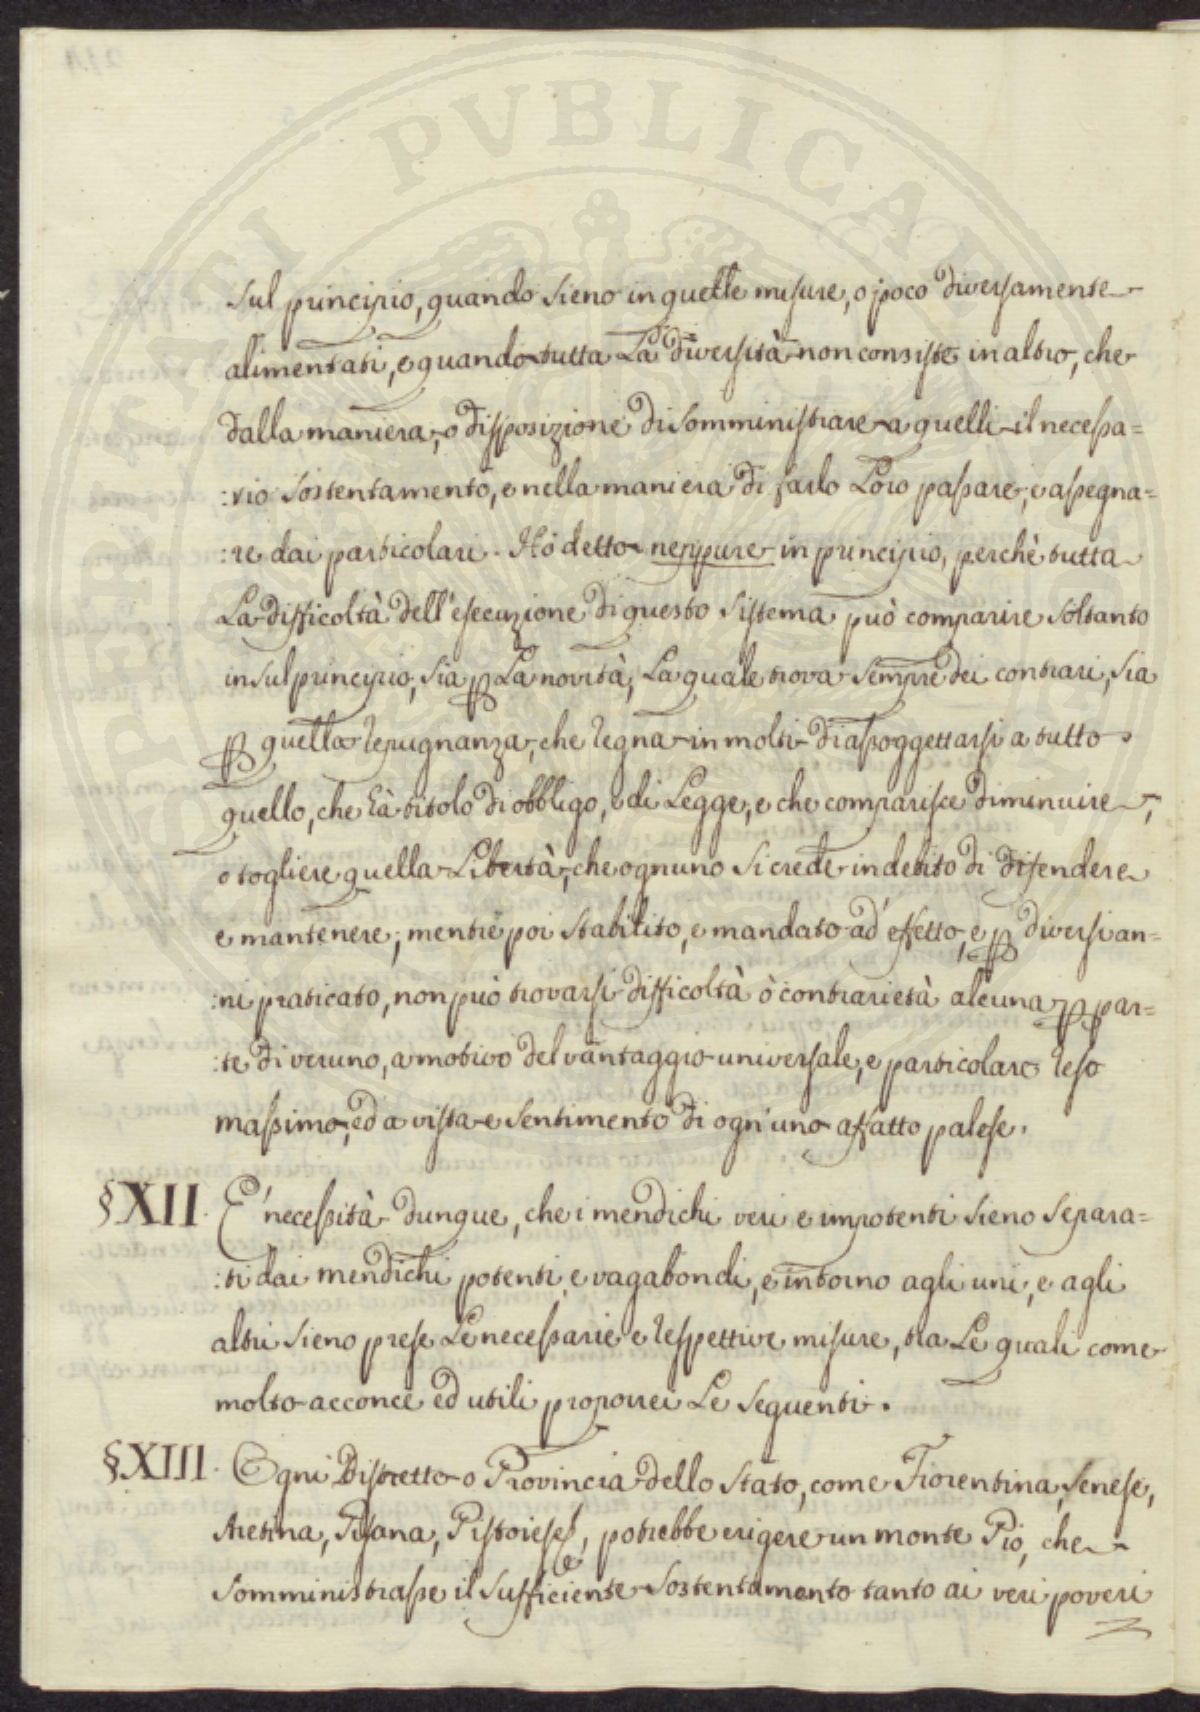 sul principio, quando sieno in quelle misure, o poco diversamente
alimentati, e quando tutta La diversità non consiste in altro, che
dalla maniera, o disposizione di somministrare a quelli il necessa=
:rio sostentamento, e nella maniera di farlo Loro passare, e assegna=
:re dai particolari. Hò detto neppure in principio, perchè tutta
La difficoltà dell'esecuzione di questo sistema può comparire soltanto
in sul principio, sia p La novità, La quale trova sempre dei contrari, sia
p quella repugnanza, che regna in molti di assoggettarsi a tutto
quello, che hà titolo di obbligo, e di Legge, e che comparisce diminuire,
o togliere quella Libertà, che ognuno si crede in debito di difendere
e mantenere; mentre poi stabilito, e mandato ad effetto, e p diversi an=
:ni praticato, non può trovarsi difficoltà ò contrarietà alcuna p par=
:te di veruno, a motivo del vantaggio universale, e particolare reso
massimo, ed a vista e sentimento di ogn'uno affatto palese.
§XII. E' necessità dunque, che i mendichi veri e impotenti sieno separa=
:ti dai mendichi potenti, e vagabondi, e intorno agli uni, e agli
altri sieno prese Le necessarie e respettive misure, tra Le quali come
molto acconce ed utili proporrei Le seguenti.
§XIII. Ogni Distretto o Provincia dello Stato, come Fiorentina, Senese,
Aretina, Pisana, Pistoiese, potrebbe erigere un monte Pio, che
somministrasse il sufficiente sostentamento tanto ai veri poveri